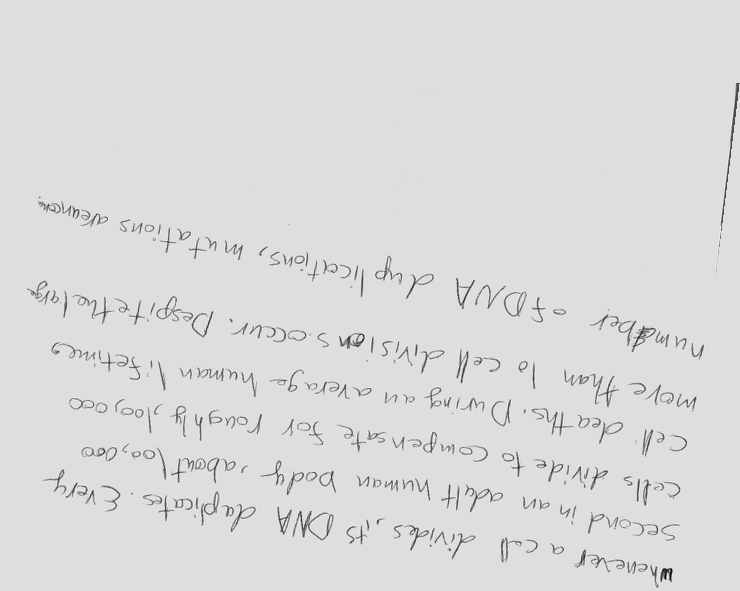 whenever a cell divides, its DNA duplicates. Every
second in an adult human body, about 100,000
cells divide to compensate for roughly 100,000
cell deaths. During an average human lifetimes
more than 10 cell divisions occur. Despite the large
number of DNA duplications, mutations are